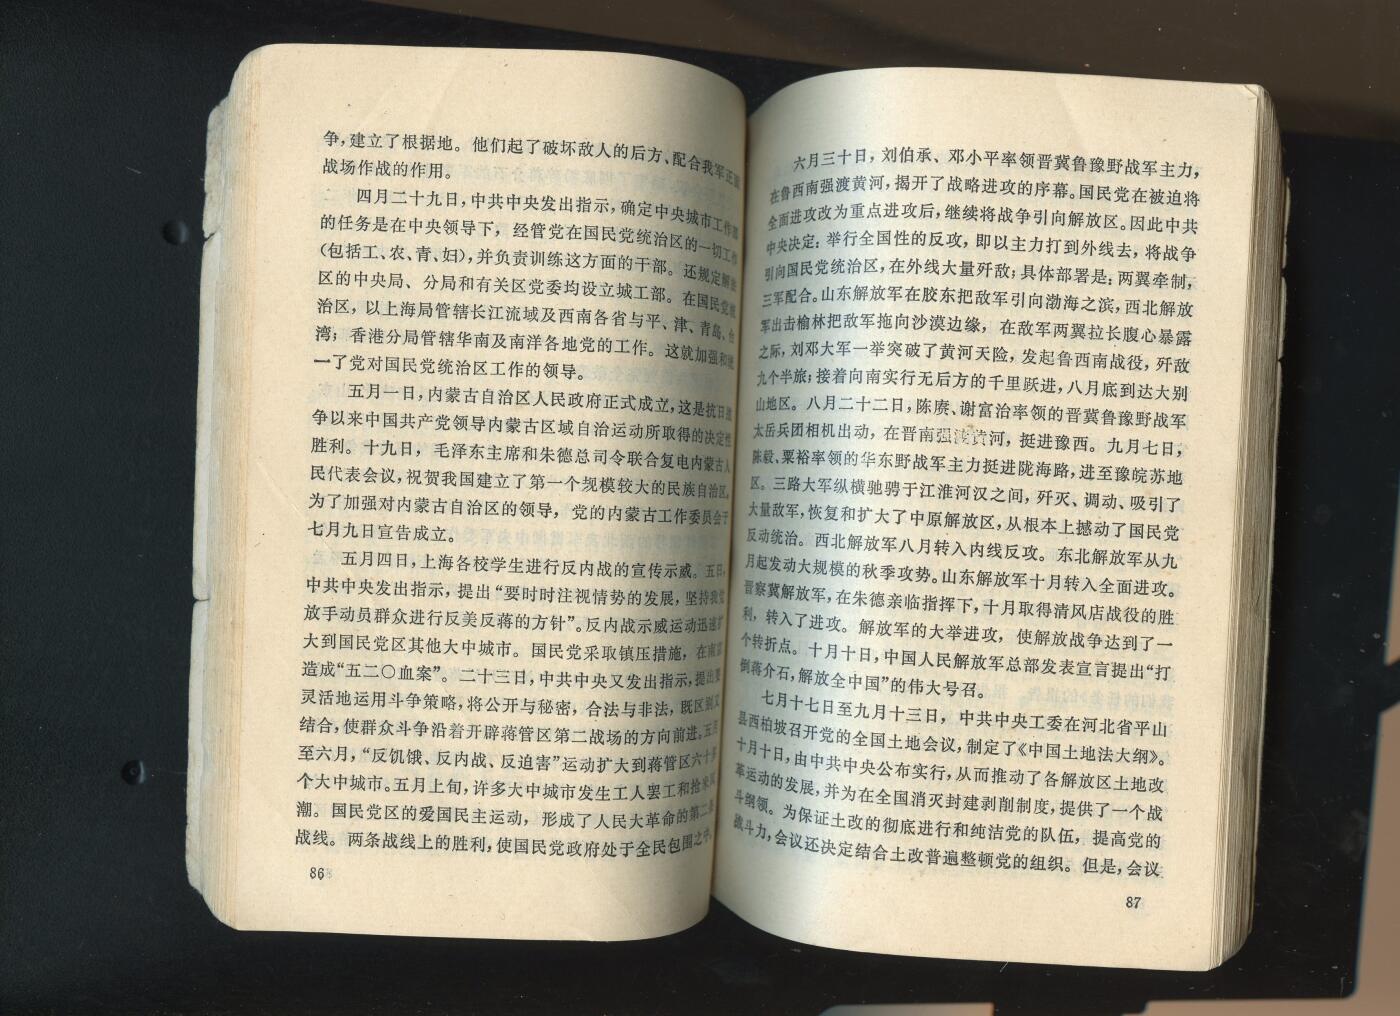 争，建立了根据地。他们起了破坏敌人的后方、配合我军正面
战场作战的作用。
四月二十九日，中共中央发出指示，确定中央城市工作部
的任务是在中央领导下，经管党在国民党统治区的一切工作
(包括工、农、青、妇)，并负责训练这方面的干部。还规定解放
区的中央局、分局和有关区党委均设立城工部。在国民党统
治区，以上海局管辖长江流域及西南各省与平、津、青岛、台
湾；香港分局管辖华南及南洋各地党的工作。这就加强和统
一了党对国民党统治区工作的领导。
五月一日，内蒙古自治区人民政府正式成立，这是抗日战
争以来中国共产党领导内蒙古区域自治运动所取得的决定性
胜利。十九日，毛泽东主席和朱德总司令联合复电内蒙古人
民代表会议，祝贺我国建立了第一个规模较大的民族自治区。
为了加强对内蒙古自治区的领导，党的内蒙古工作委员会于
七月九日宣告成立。
五月四日，上海各校学生进行反内战的宣传示威。五日，
中共中央发出指示，提出“要时时注视情势的发展，坚持我党
放手动员群众进行反美反蒋的方针”。反内战示威运动迅速扩
大到国民党区其他大中城市。国民党采取镇压措施，在南京
造成“五二〇血案”。二十三日，中共中央又发出指示，提出要
灵活地运用斗争策略，将公开与秘密，合法与非法，既区别又
结合，使群众斗争沿着开辟蒋管区第二战场的方向前进。五月
至六月，“反饥饿、反内战、反迫害”运动扩大到蒋管区六十多
个大中城市。五月上旬，许多大中城市发生工人罢工和抢米风
潮。国民党区的爱国民主运动，形成了人民大革命的第二条
战线。两条战线上的胜利，使国民党政府处于全民包围之中。
86
六月三十日，刘伯承、邓小平率领晋冀鲁豫野战军主力，
在鲁西南强渡黄河，揭开了战略进攻的序幕。国民党在被迫将
全面进攻改为重点进攻后，继续将战争引向解放区。因此中共
中央决定：举行全国性的反攻，即以主力打到外线去，将战争
引向国民党统治区，在外线大量歼敌；具体部署是：两翼牵制，
三军配合。山东解放军在胶东把敌军引向渤海之滨，西北解放
军出击榆林把敌军拖向沙漠边缘，在敌军两翼拉长腹心暴露
之际，刘邓大军一举突破了黄河天险，发起鲁西南战役，歼敌
九个半旅；接着向南实行无后方的千里跃进，八月底到达大别
山地区。八月二十二日，陈赓、谢富治率领的晋冀鲁豫野战军
太岳兵团相机出动，在晋南强渡黄河，挺进豫西。九月七日，
陈毅、粟裕率领的华东野战军主力挺进陇海路，进至豫皖苏地
区。三路大军纵横驰骋于江淮河汉之间，歼灭、调动、吸引了
大量敌军，恢复和扩大了中原解放区，从根本上撼动了国民党
反动统治。西北解放军八月转入内线反攻。东北解放军从九
月起发动大规模的秋季攻势。山东解放军十月转入全面进攻。
晋察冀解放军，在朱德亲临指挥下，十月取得清风店战役的胜
利，转入了进攻。解放军的大举进攻，使解放战争达到了一
个转折点。十月十日，中国人民解放军总部发表宣言提出“打
倒蒋介石，解放全中国”的伟大号召。
七月十七日至九月十三日，中共中央工委在河北省平山
县西柏坡召开党的全国土地会议，制定了《中国土地法大纲》。
十月十日，由中共中央公布实行，从而推动了各解放区土地改
革运动的发展，并为在全国消灭封建剥削制度，提供了一个战
斗纲领。为保证土改的彻底进行和纯洁党的队伍，提高党的
战斗力，会议还决定结合土改普遍整顿党的组织。但是，会议
87